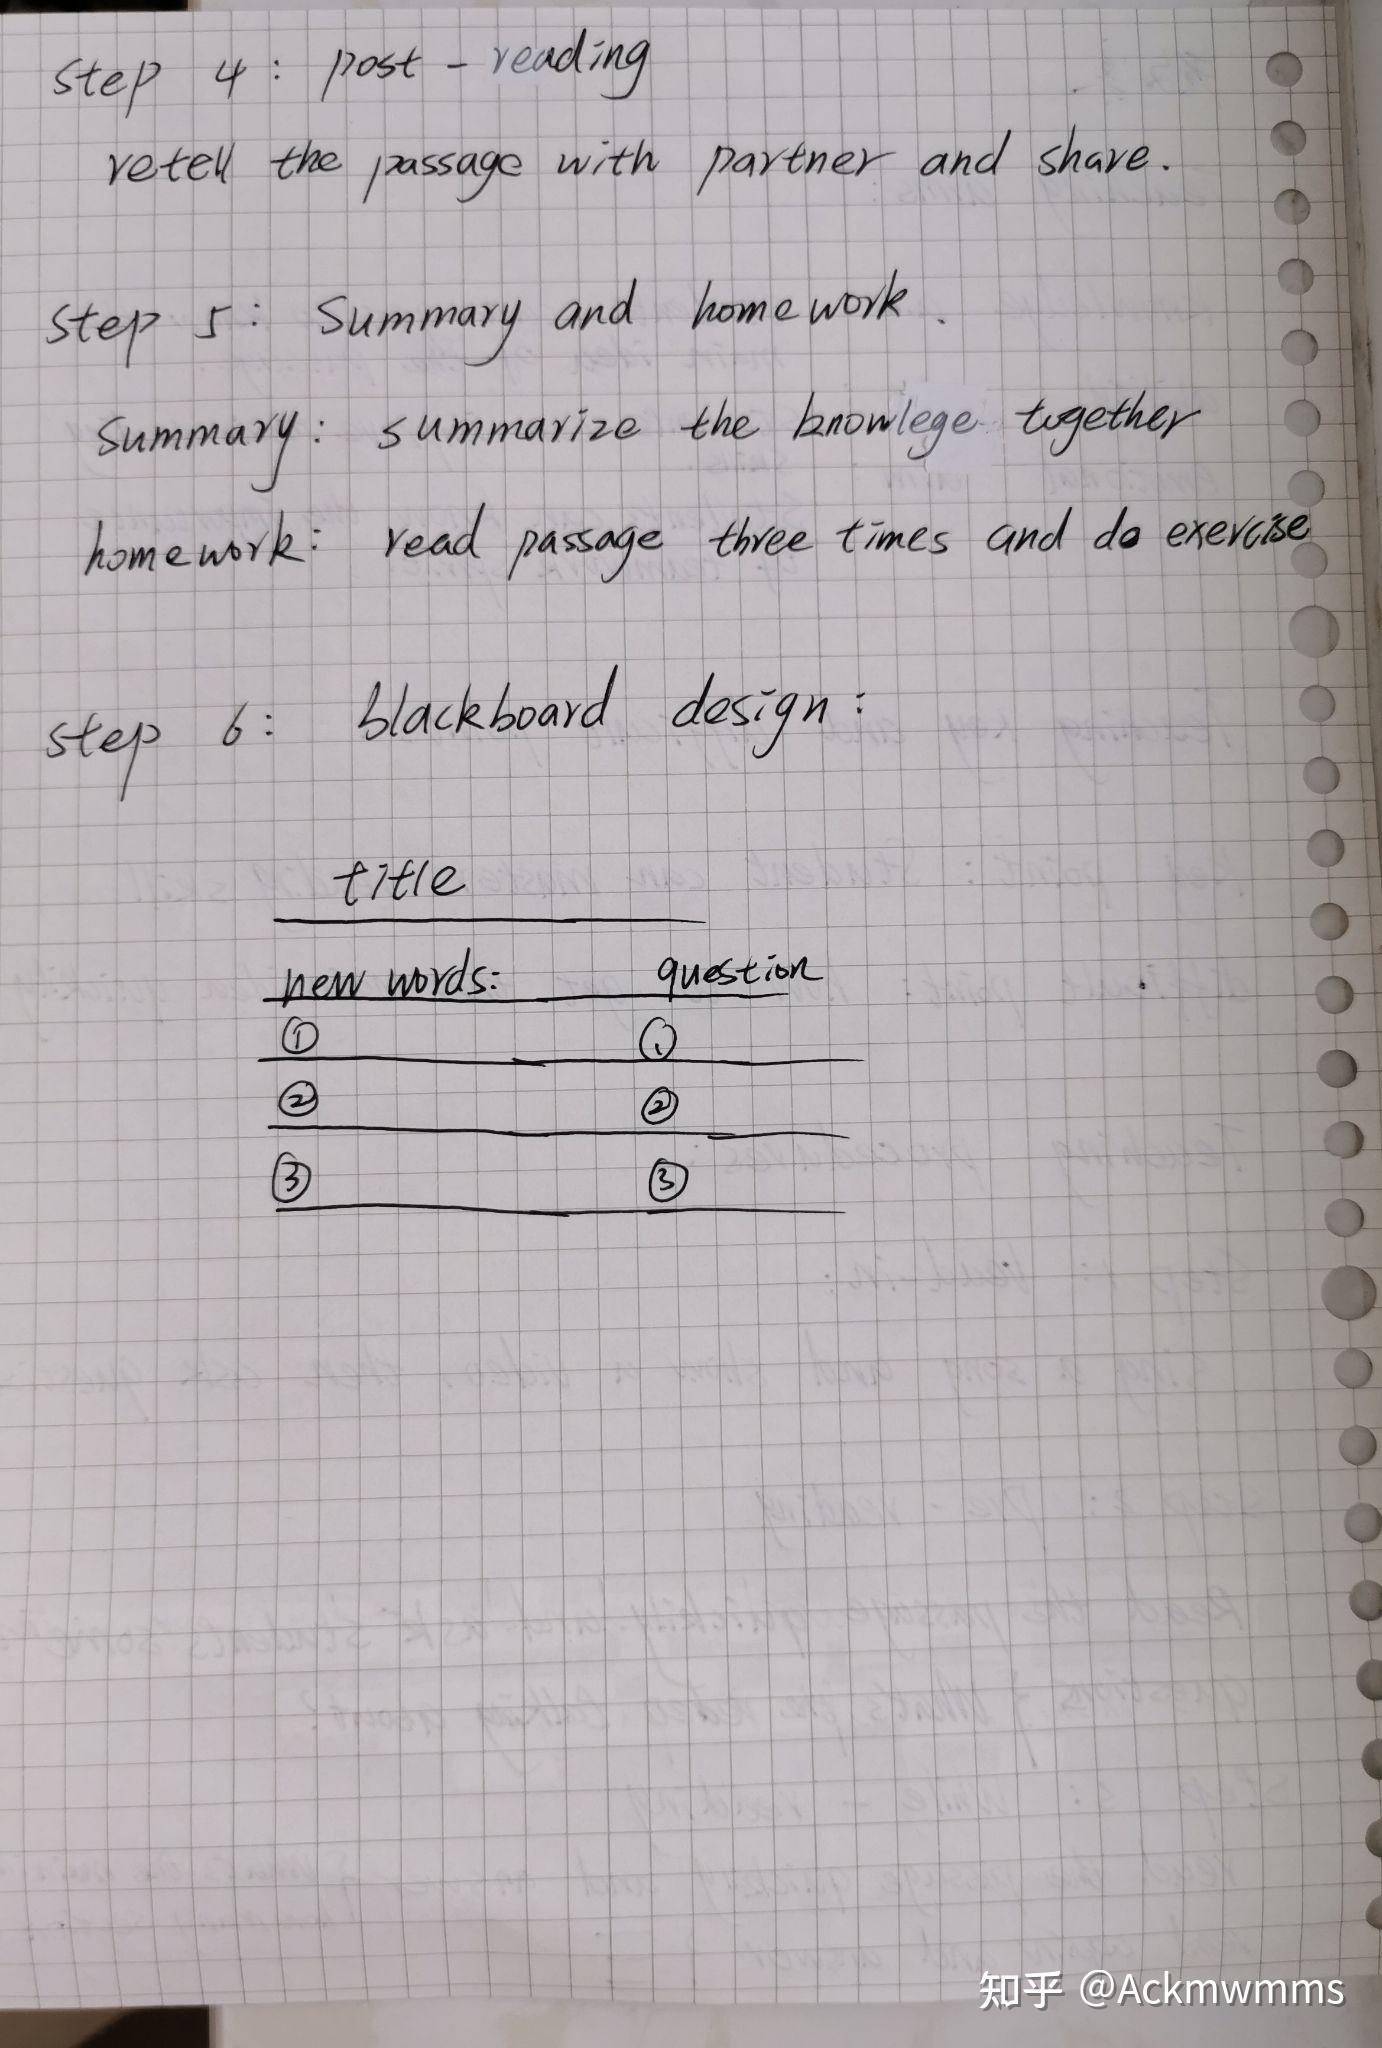 step 4: post - reading
retell the passage with partner and share.
step 5: Summary and homework.
summary: summarize the knowlege together
homework: read passage three times and do exercise
step 6: blackboard design:
title
new words: question
① ①
② ②
③ ③
知乎 @Ackmwmms